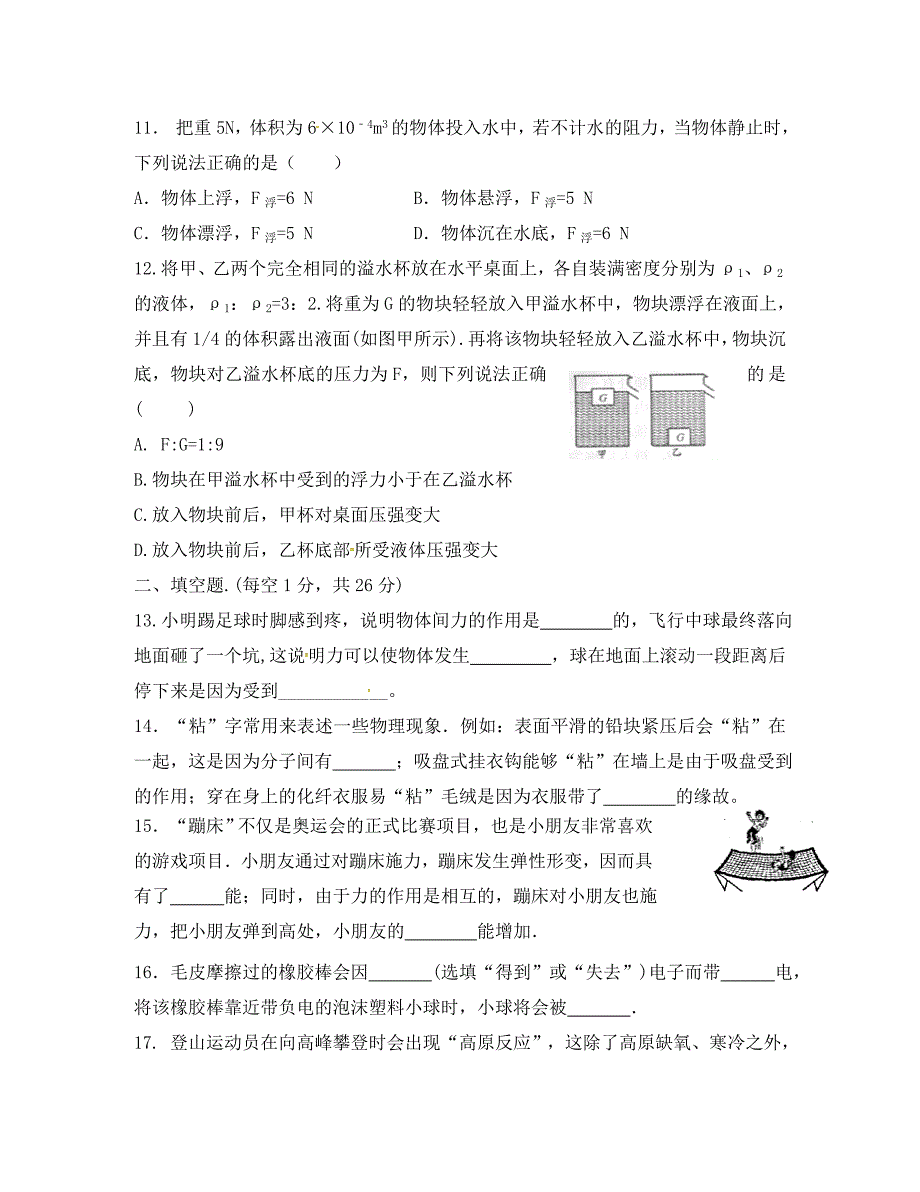 11． 把重5N，体积为6×10﹣4m3的物体投入水中，若不计水的阻力，当物体静止时，
下列说法正确的是（　　）
A．物体上浮，F浮=6 N　　B．物体悬浮，F浮=5 N
C．物体漂浮，F浮=5 N　　D．物体沉在水底，F浮=6 N
12.将甲、乙两个完全相同的溢水杯放在水平桌面上，各自装满密度分别为ρ1、ρ2
的液体，ρ1：ρ2=3：2.将重为G的物块轻轻放入甲溢水杯中，物块漂浮在液面上，
并且有1/4的体积露出液面(如图甲所示).再将该物块轻轻放入乙溢水杯中，物块沉
底，物块对乙溢水杯底的压力为F，则下列说法正确 的是
(　　)
G
G
甲
乙
A. F:G=1:9
B.物块在甲溢水杯中受到的浮力小于在乙溢水杯
C.放入物块前后，甲杯对桌面压强变大
D.放入物块前后，乙杯底部所受液体压强变大
二、填空题.(每空1分，共26分)
13.小明踢足球时脚感到疼，说明物体间力的作用是________的，飞行中球最终落向
地面砸了一个坑,这说明力可以使物体发生_________，球在地面上滚动一段距离后
停下来是因为受到____________。
14．“粘”字常用来表述一些物理现象．例如：表面平滑的铅块紧压后会“粘”在
一起，这是因为分子间有_______；吸盘式挂衣钩能够“粘”在墙上是由于吸盘受到
的作用；穿在身上的化纤衣服易“粘”毛绒是因为衣服带了________的缘故。
15．“蹦床”不仅是奥运会的正式比赛项目，也是小朋友非常喜欢
的游戏项目．小朋友通过对蹦床施力，蹦床发生弹性形变，因而具
有了______能；同时，由于力的作用是相互的，蹦床对小朋友也施
力，把小朋友弹到高处，小朋友的________能增加．
16．毛皮摩擦过的橡胶棒会因_______(选填“得到”或“失去”)电子而带______电，
将该橡胶棒靠近带负电的泡沫塑料小球时，小球将会被_______．
17. 登山运动员在向高峰攀登时会出现“高原反应”，这除了高原缺氧、寒冷之外，